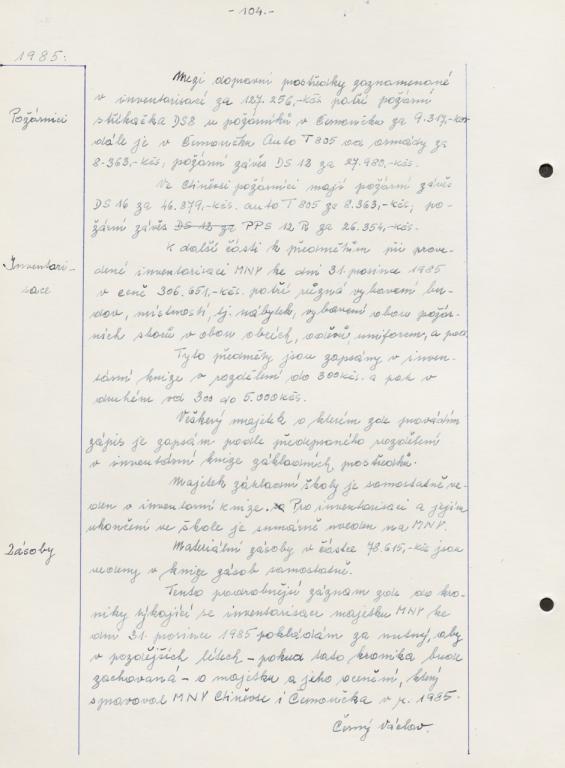 - 104.-
1985:
Mezi dopravní prostředky zaznamenané
v inventarisaci za 127.256,-kčs patří požární
Požárníci
stříkačka DS8 u požárníků v Černovičku za 9.317,-kčs
dále je v Černovičku Auto T 805 od armády za
8.363,-kčs, požární závěs DS 12 za 27.980,-kčs.
Ve Ctiněvsi požárníci mají požární závěs
DS 16 za 46.879,-kčs. auto T 805 za 8.363,-kčs, po-
žární závěs DS 12 za PPS 12 R za 26.354,-kčs.
K další části k předmětům při prove-
Inventari-
sace
dené inventarisaci MNV ke dni 31. prosince 1985
v ceně 306.651,-kčs. patří různá vybavení bu-
dov, místností, tj. nábytek, vybavení obou požár-
ních sborů v obou obcích, oděvů, uniforem, a pod.
Tyto předměty jsou zapsány v inven-
tární knize v rozdělení do 300kčs. a pak v
druhém od 300 do 5.000kčs.
Veškerý majetek o kterém zde provádím
zápis je zapsám podle předepsaného rozdělení
v inventární knize základních prostředků.
Majetek základní školy je samostatně ve-
den v inventarní knize. Pro inventarisaci a jejím
ukončení ve škole je sumárně uveden na MNV.
Zásoby
Materiální zásoby v částce 78.615,-kčs jsou
vedeny v knize zásob samostatně.
Tento podrobnější záznam zde do kro-
niky týkající se inventarisace majetku MNV ke
dni 31. prosince 1985 pokládám za nutný, aby
v pozdějších létech - pokud tato kronika bude
zachovaná - o majetku a jeho ocenění, který
spravoval MNV Ctiněves i Černovička v r. 1985.
Černý Václav.